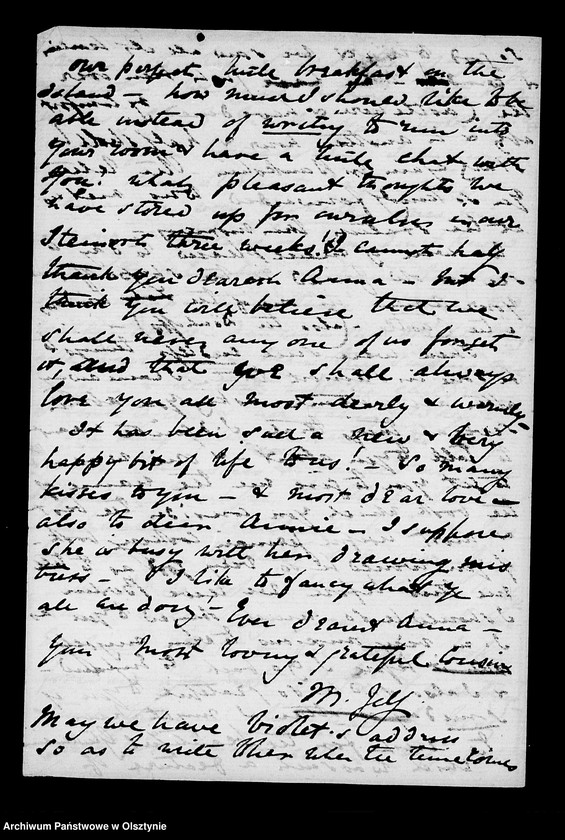 our perfect little breakfast on the
Island - how much I should like to be
able instead of writing to run into
your room & have a little chat with
you! what pleasant thoughts we
have stored up for ourselves in our
Steinort three weeks! I cannot half
thank you dearest Anna - but I
think you will believe that we
shall never any one of us forget
it, and that we shall always
love you all most dearly & warmly
It has been such a new & very
happy bit of life to us! - So many
kisses to you - & most dear love -
also to dear Annie - I suppose
she is busy with her drawing mis
tress - & I like to fancy what ye
all are doing! - Ever dearest Anna -
your most loving & grateful Cousin
M. Jelf
May we have Violet's address
so as to write to her when the time comes
Archiwum Państwowe w Olsztynie